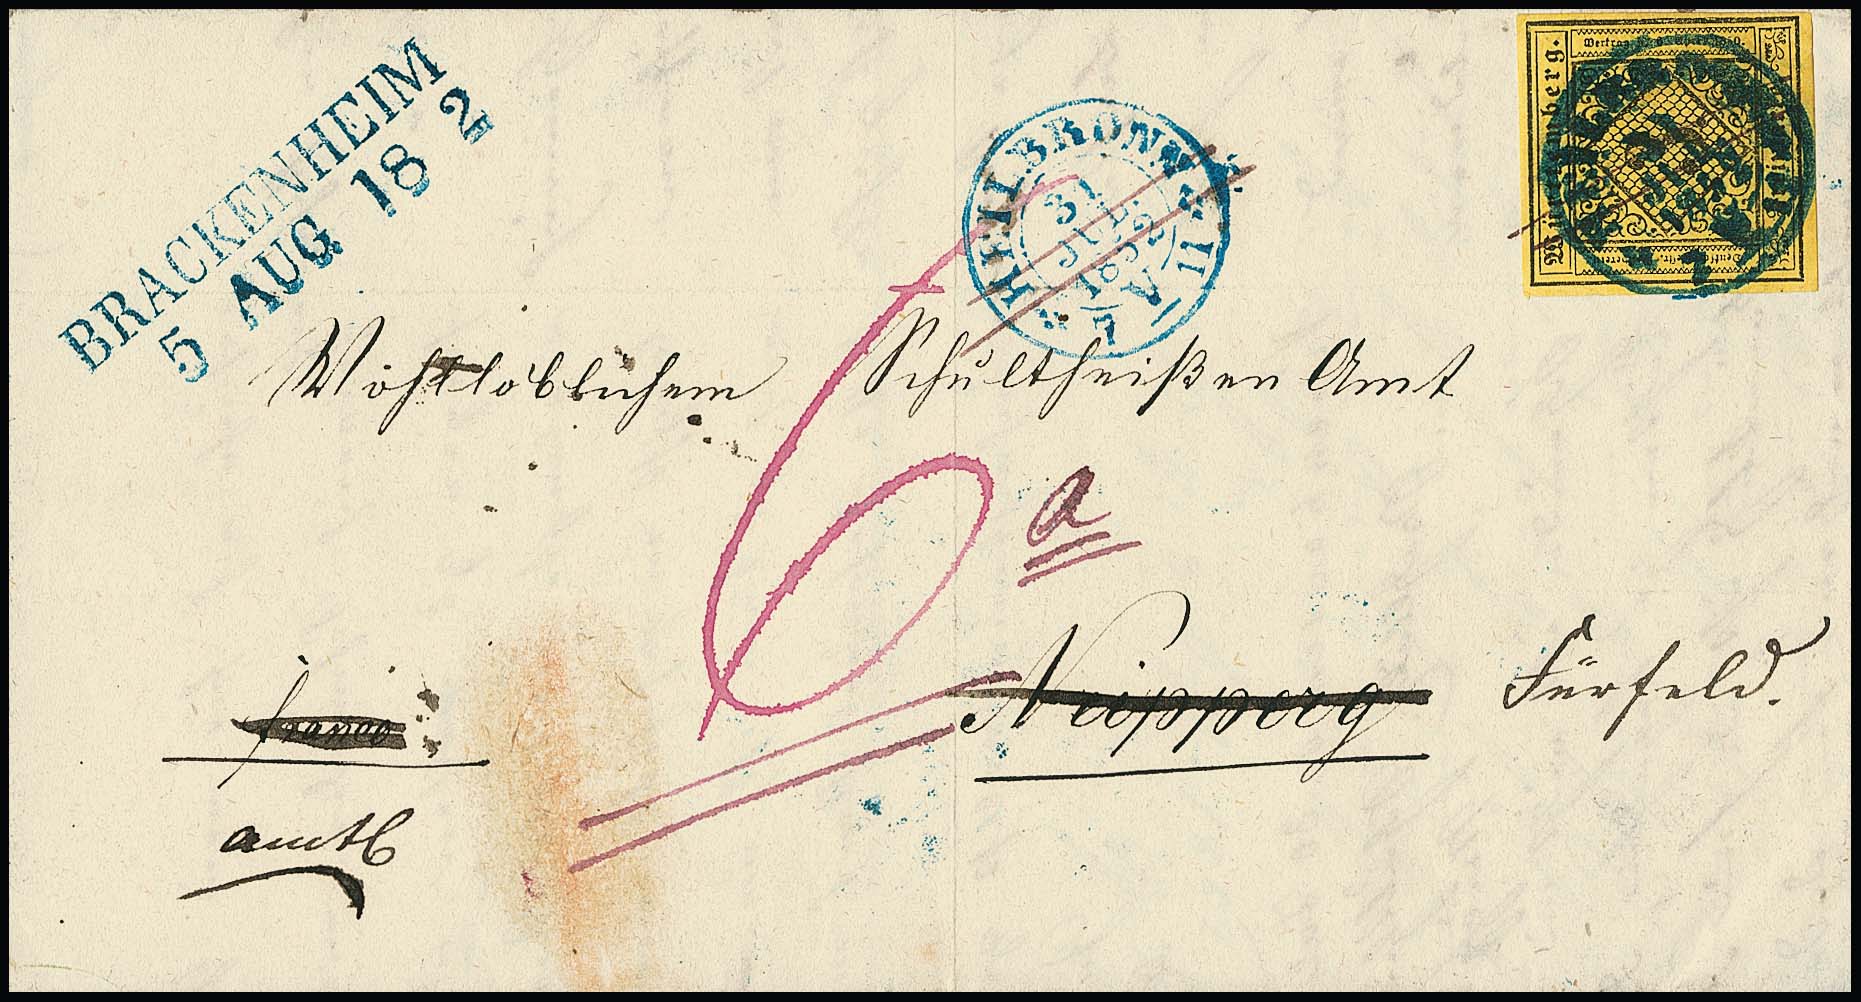 BRACKENHEIM
5 AUG 18 2
HEILBRONN
31
JUL
1852
Württemberg.
Wohllöblichem Schultheißen Amt
6
a
franco
Neipperg Fürfeld.
amtl